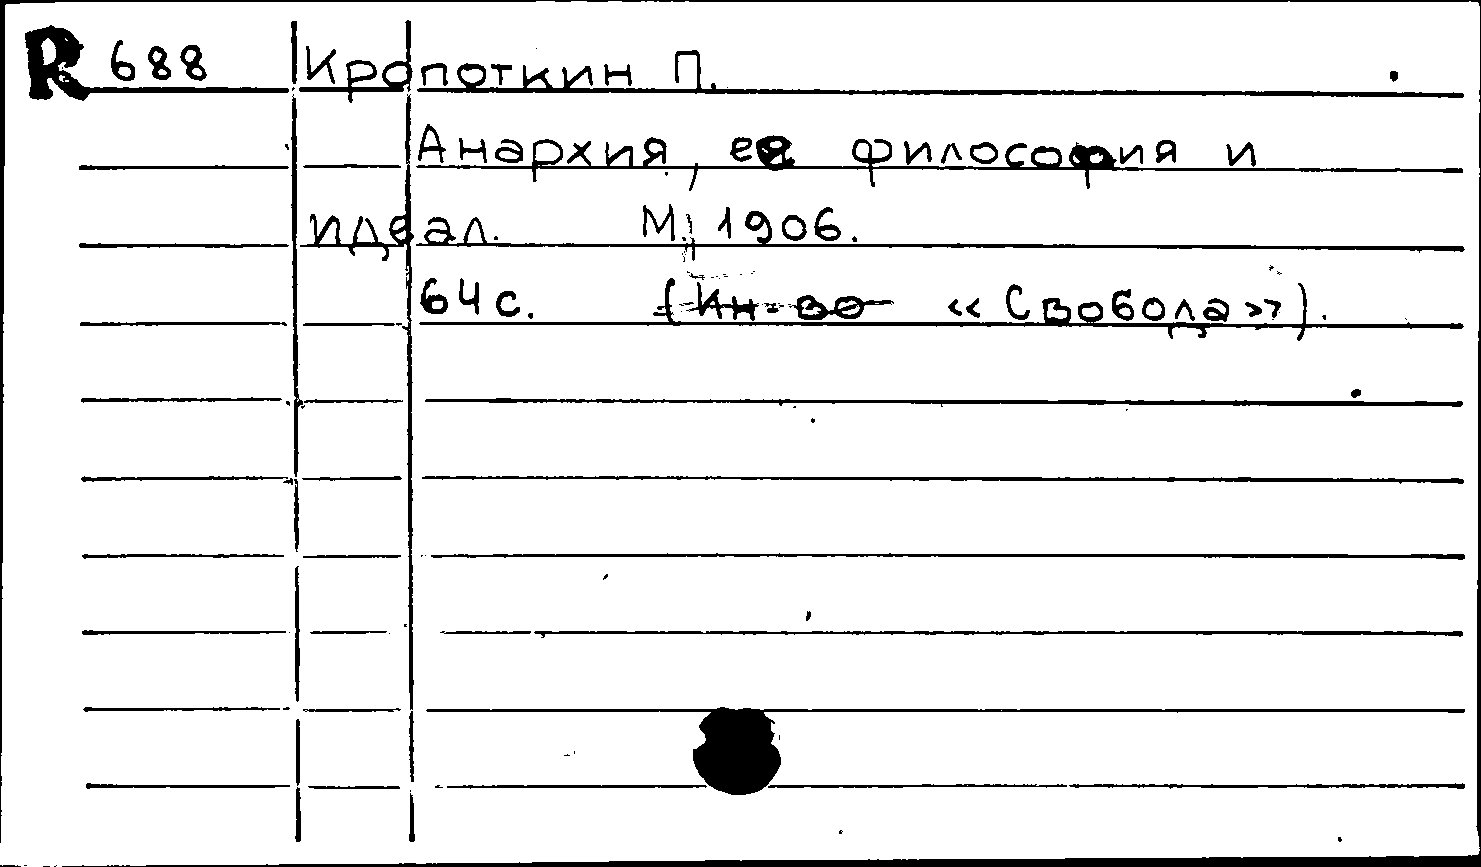 R 688 Кропоткин П.
Анархия, ее философия и
идеал. М., 1906.
64 с. (Ин-во «Свобода»).